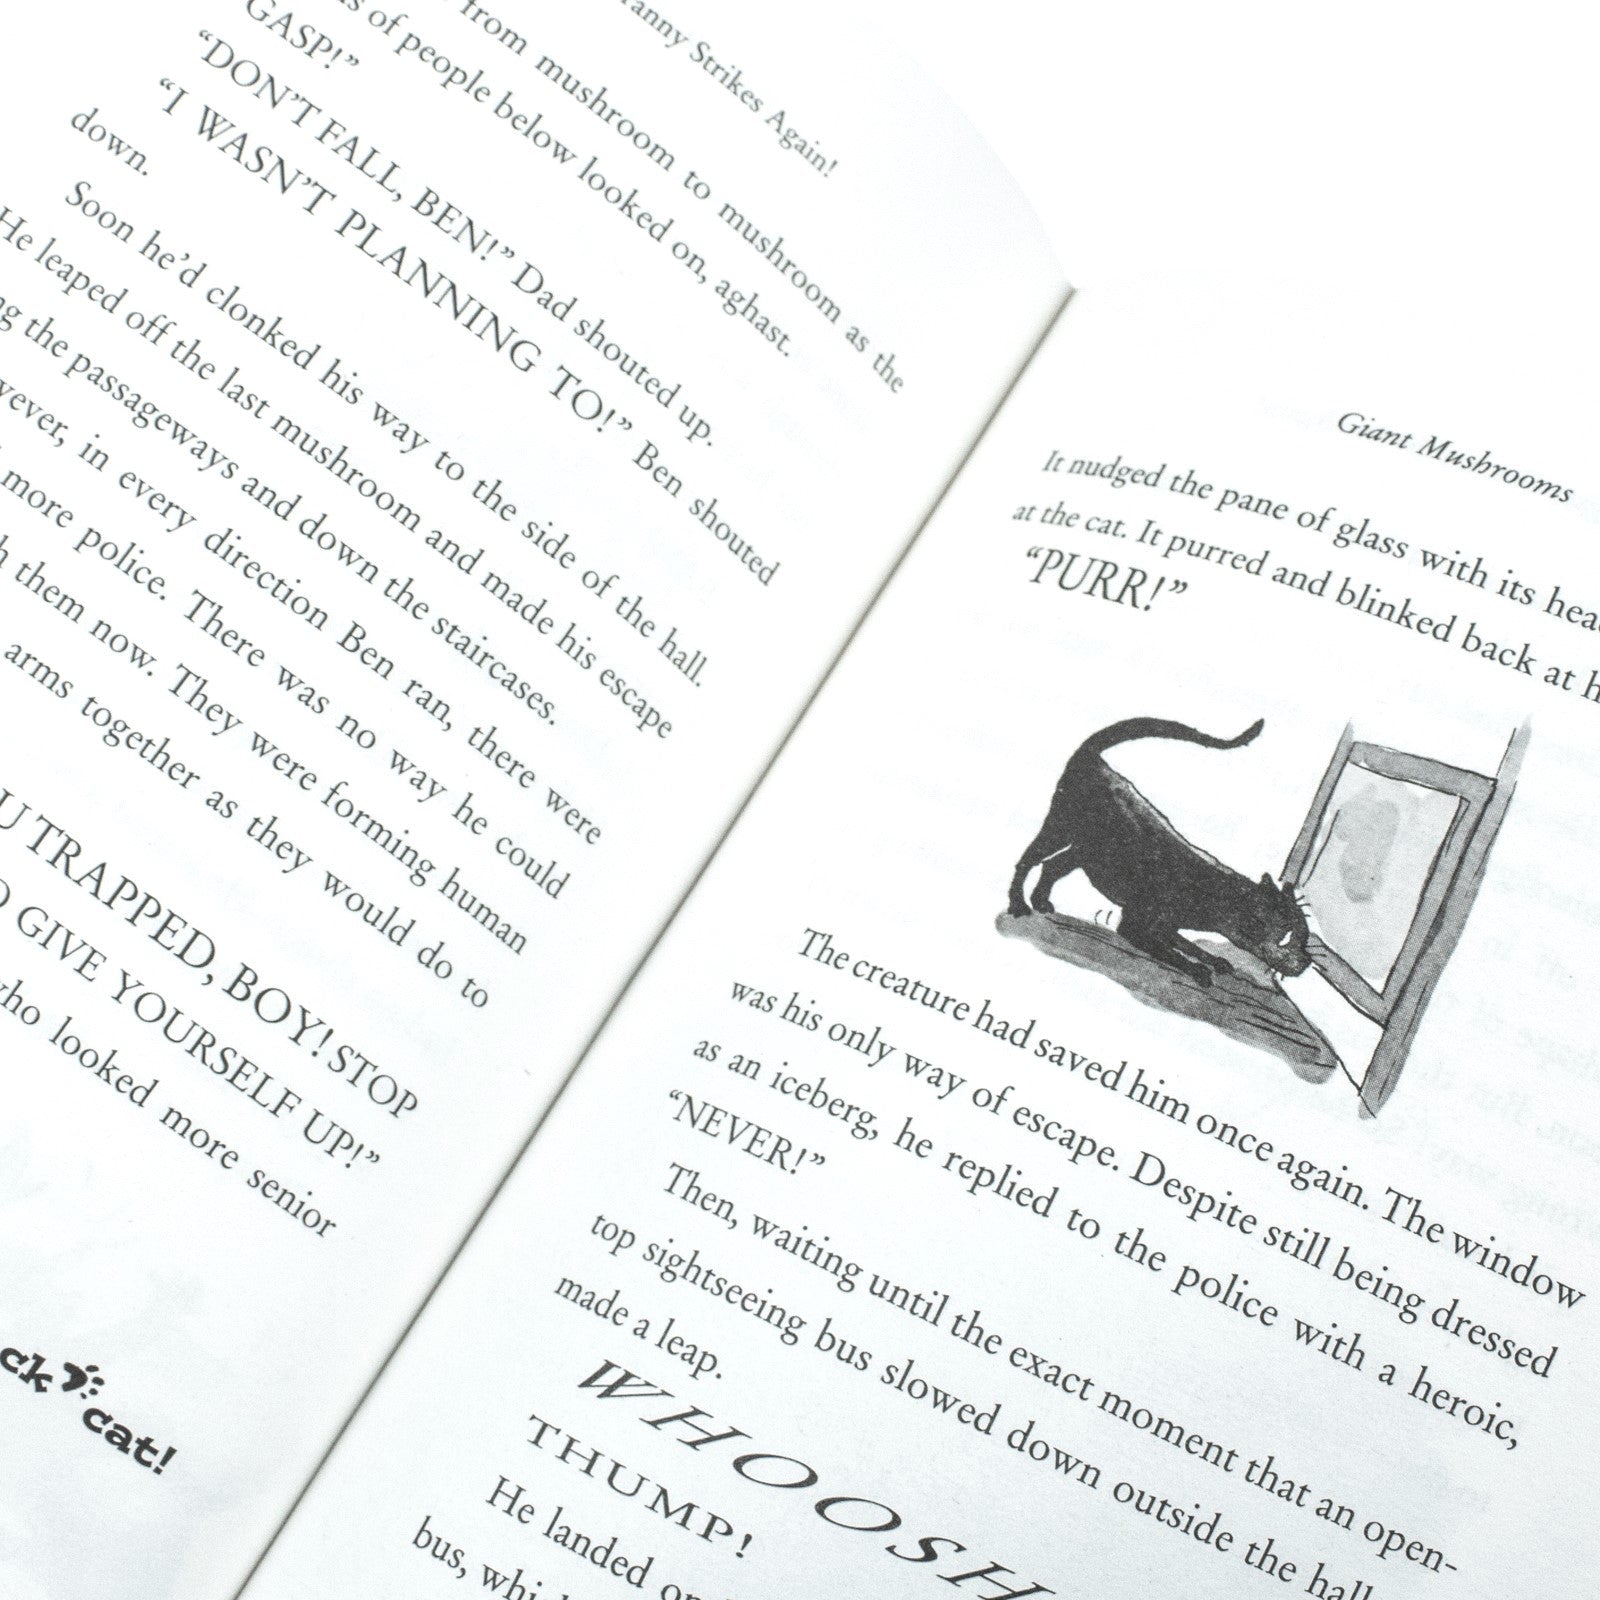 Strikes Again!
from mushroom to mushroom as the
of people below looked on, aghast.
GASP!”
“DON’T FALL, BEN!” Dad shouted up.
“I WASN’T PLANNING TO!” Ben shouted
down.
Soon he’d clonked his way to the side of the hall.
He leaped off the last mushroom and made his escape
the passageways and down the staircases.
in every direction Ben ran, there were
more police. There was no way he could
them now. They were forming human
arms together as they would do to
TRAPPED, BOY! STOP
GIVE YOURSELF UP!”
looked more senior
cat!
Giant Mushrooms
It nudged the pane of glass with its
at the cat. It purred and blinked back at
“PURR!”
The creature had saved him once again. The window
was his only way of escape. Despite still being dressed
as an iceberg, he replied to the police with a heroic,
“NEVER!”
Then, waiting until the exact moment that an open-
top sightseeing bus slowed down outside the
made a leap.
WHOOSH
THUMP!
He landed
bus,